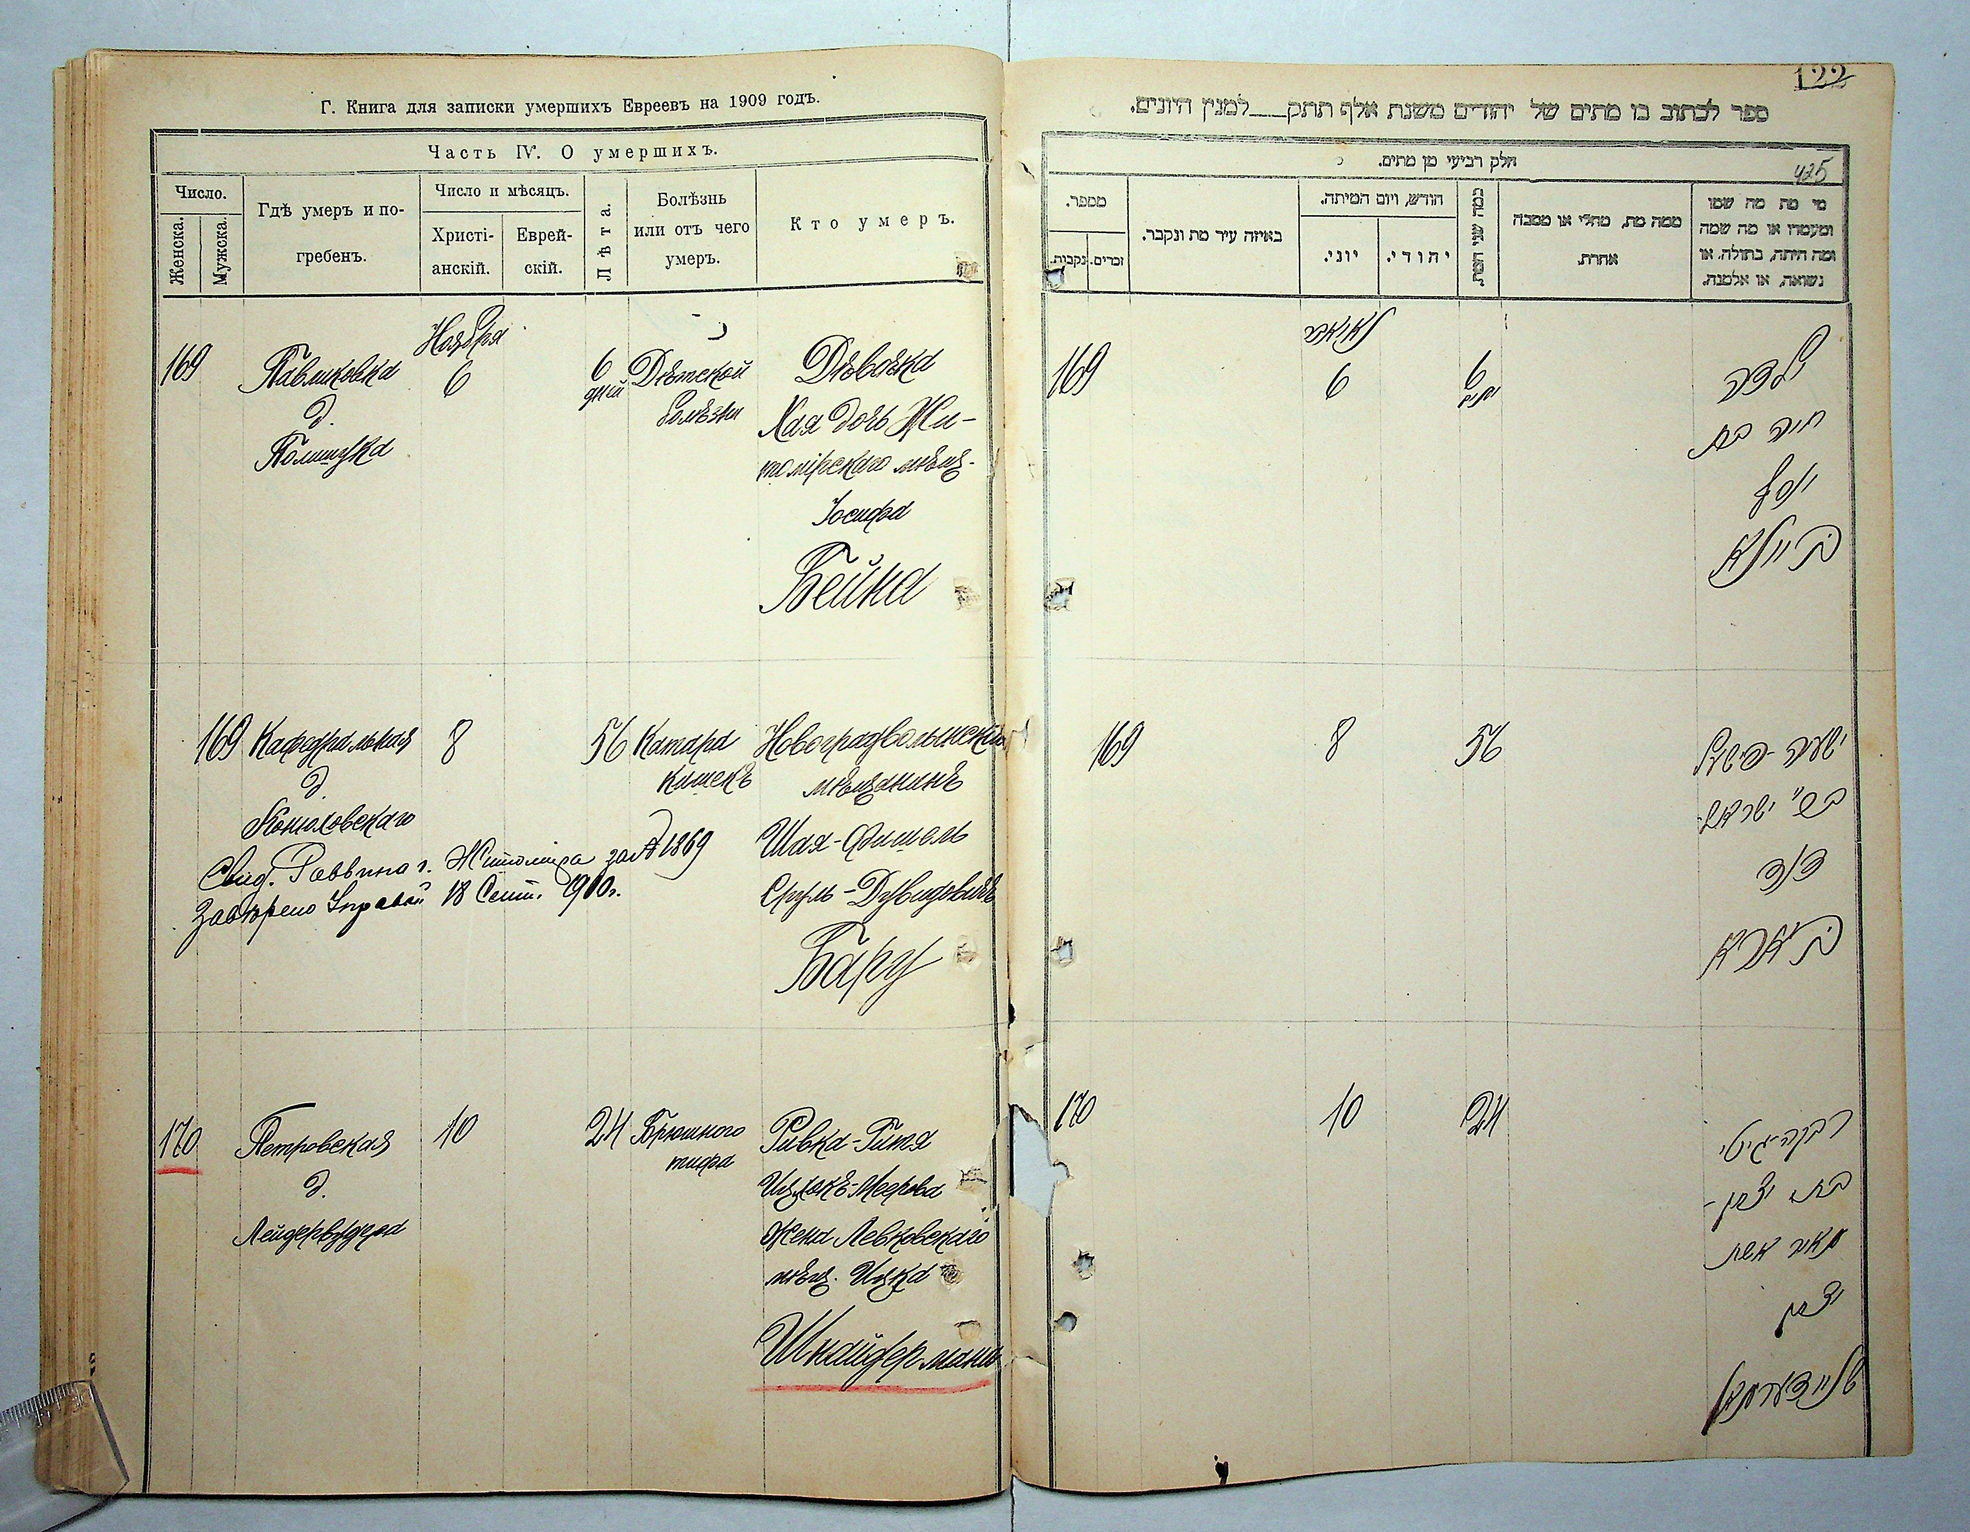 Г. Книга для записки умершихъ Евреевъ на 1909 годъ.
Часть IV. О умершихъ.
Число.
Женска.
Мужска.
Гдѣ умеръ и по-
гребенъ.
Число и мѣсяцъ.
Христі-
анскій.
Еврей-
скій.
Лѣта.
Болѣзнь
или отъ чего
умеръ.
Кто умеръ.
169
Павликовка
д.
Полищука
Ноября
6
6
дней
Дѣтской
болѣзни
Дѣвочка
Хая дочь Жи-
томірскаго мѣщ.
Іосифа
Бейна
169
Кафедральная
д.
8
56
Катара
кишекъ
Новоградволынскій
мѣщанинъ
Шая-Фишель
Сруль-Дувидовичъ
Бару
Свид. Раввина г. Житомира за № 1869
Завѣрено Управой 18 Сент. 1910г.
170
Петровская
д.
10
24
Брюшного
тифа
Ривка-Гитя
Ицхокъ-Меерова
жена Левковскаго
мѣщ. Ицка
Шнайдерманъ
122
ספר לכתוב בו מתים של יהודים משנת אלף תתק למנין היונים.
425
חלק רביעי מן מתים.
מספר.
נקבות.
זכרים.
באיזה עיר מת ונקבר.
חודש, ויום המיתה.
יוני.
יהודי.
כמה שני המת.
ממה מת, מחלי או מסבה
אחרת.
מי מת מה שמו
ומעמדו או מה שמה
ומה היתה, בתולה, או
נשואה, או אלמנה.
169
6
6
ימים
ילדה
חיה בת
יוסף
ביינא
169
8
56
ישעיה-פישל
ב"ר ישראל
דוד
170
10
24
רבקה-גיטי
בת יצחק-
מאיר אשת
יצחק
שניידערמאן